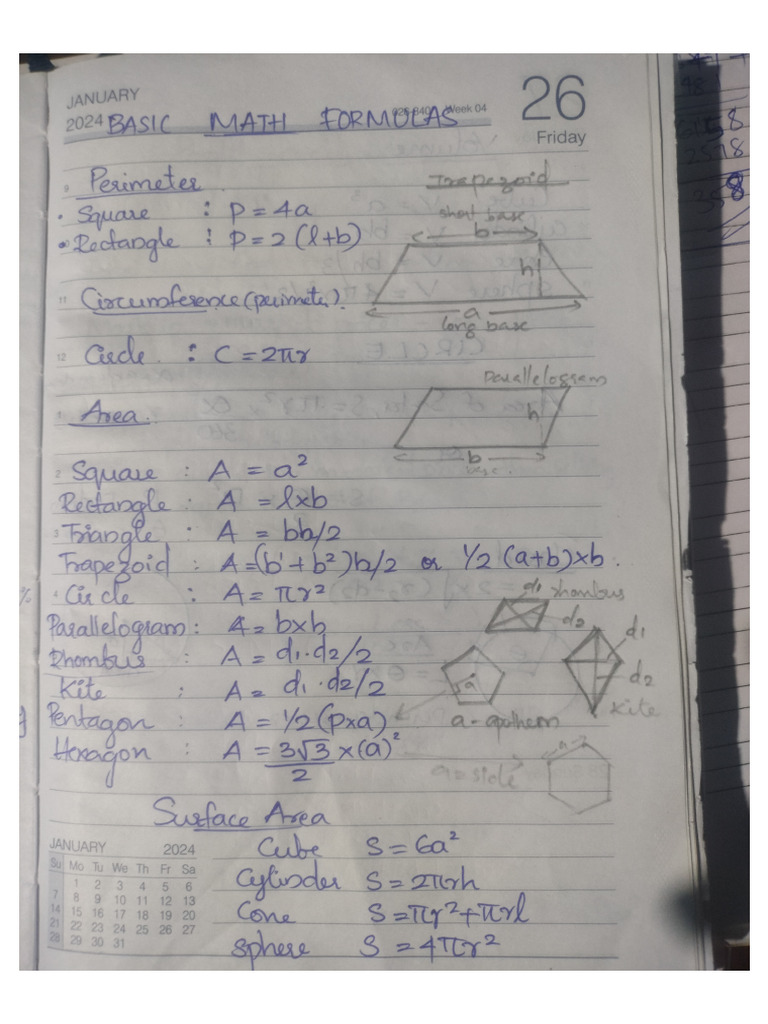 JANUARY
2024
Week 04
26
Friday
BASIC MATH FORMULAS
Perimeter
• Square : P = 4a
• Rectangle : P = 2 (l+b)
Trapezoid
short base
b
h
a
long base
Circumference (perimeter).
Circle : C = 2πr
Parallelogram
h
b
base.
Area.
Square : A = a²
Rectangle : A = l×b
Triangle : A = bh/2
Trapezoid : A = (b¹ + b²)h/2 or 1/2 (a+b)×h.
Circle : A = πr²
Parallelogram : A = b×h
Rhombus : A = d1·d2/2
Kite : A = d1·d2/2
Pentagon : A = 1/2 (p×a)
Hexagon : A = 3√3/2 ×(a)²
d1 rhombus
d2
d1
d2
Kite
a
a - apothem
a = side
Surface Area
Cube S = 6a²
Cylinder S = 2πrh
Cone S = πr²+πrl
Sphere S = 4πr²
JANUARY 2024
Su Mo Tu We Th Fr Sa
1 2 3 4 5 6
7 8 9 10 11 12 13
14 15 16 17 18 19 20
21 22 23 24 25 26 27
28 29 30 31